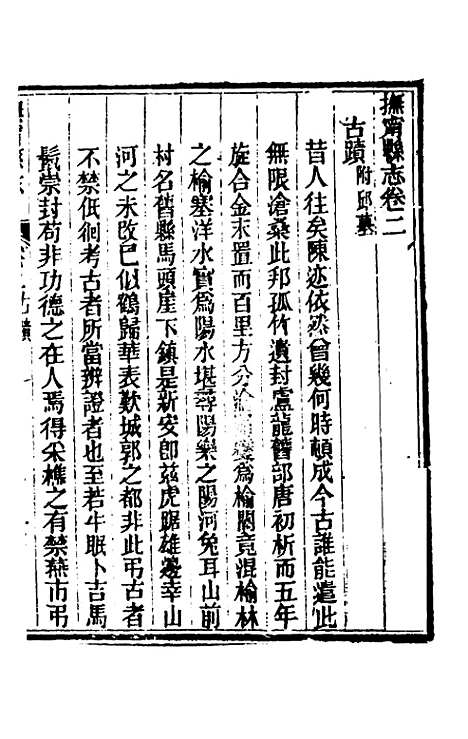 撫甯縣志卷二
古蹟附邱墓
昔人往矣陳迹依然曾幾何時頓成今古誰能遣此
無限滄桑此邦孤竹遺封盧龍舊部唐初析而五年
旋合金末置而百里方分渝關爲榆關竟混榆林
之榆塞洋水實爲陽水堪尋陽樂之陽河兔耳山前
村名舊縣馬頭崖下鎮是新安卽茲虎踞雄邊幸山
河之未改已似鶴歸華表歎城郭之都非此弔古者
不禁低徊考古者所當辨證者也至若牛眠卜吉馬
鬣崇封苟非功德之在人焉得采樵之有禁蕪市弔